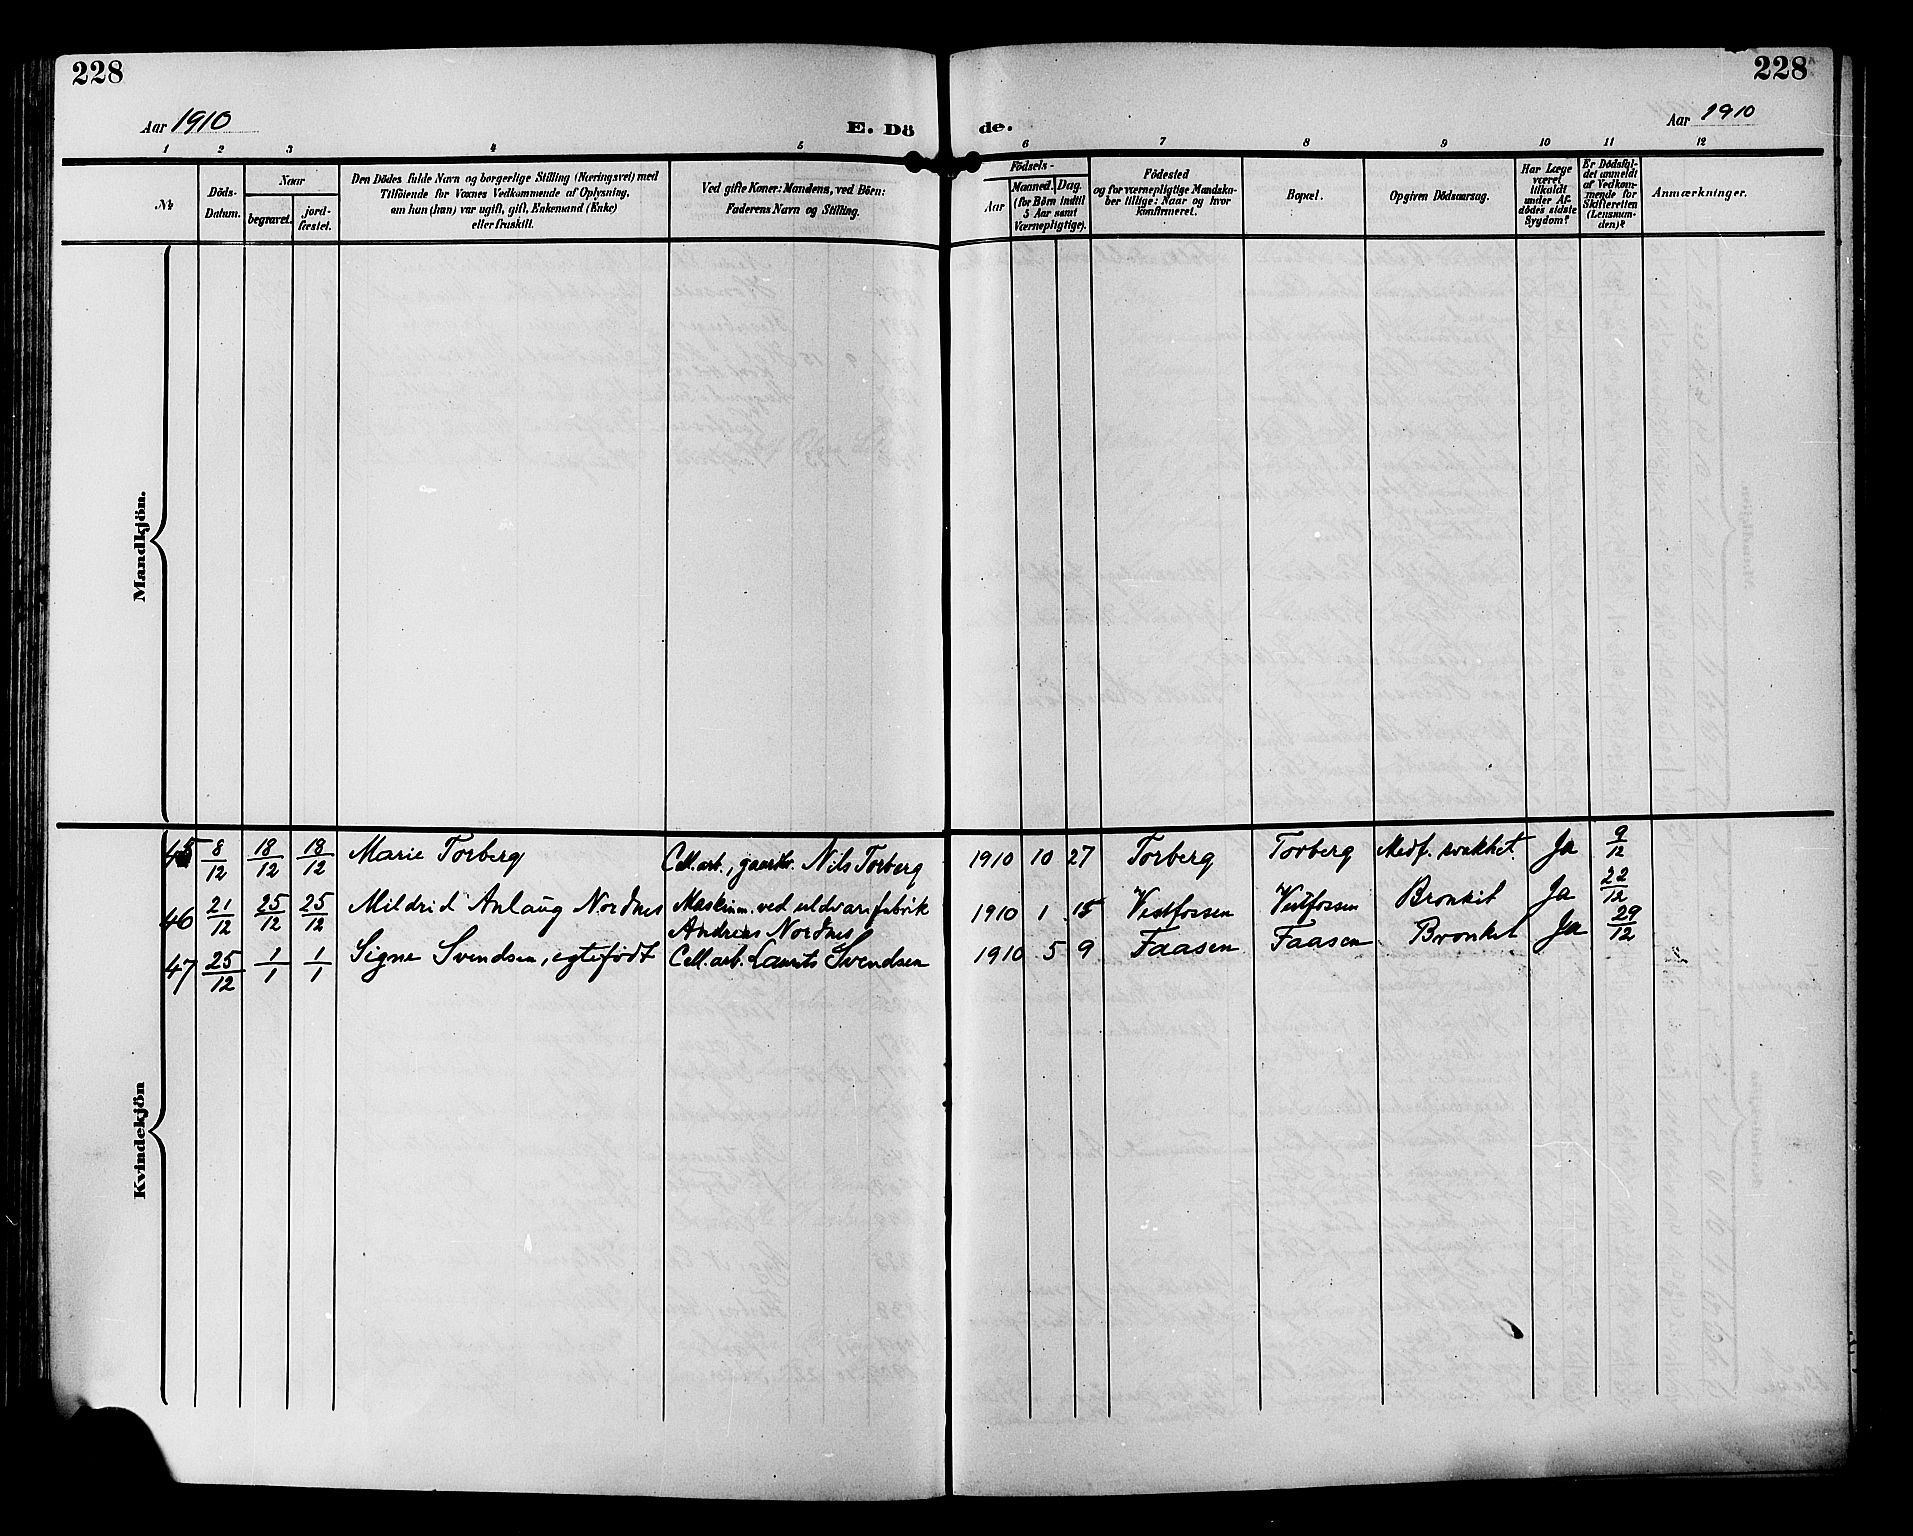 228
228
Aar 1910
E. Dö
de.
Aar 1910
1 2 3 4 5 6 7 8 9 10 11 12
№
Döds-
Datum.
Naar
begravet.
jord-
fæstet.
Den Dödes fulde Navn og borgerlige Stilling (Næringsvei) med
Tilföiende for Voxnes Vedkommende af Oplysning,
om hun (han) var ugift, gift, Enkemand (Enke)
eller fraskilt.
Ved gifte Koner: Mandens, ved Börn:
Faderens Navn og Stilling.
Födsels-
Aar
Maaned.
Dag.
(for Börn indtil
5 Aar samt
Værnepligtige).
Födested
og for værnepligtige Mandska-
ber tillige: Naar og hvor
konfirmeret.
Bopæl.
Opgiven Dödsaarsag.
Har Læge
været
tilkaldt
under Af-
dödes sidste
Sygdom?
Er Dödsfal-
det anmeldt
af Vedkom-
mende for
Skifteretten
(Lensman-
den)?
Anmærkninger.
Mandkjön.
45 8/12 18/12 18/12 Marie Torberg Cell.arb., gaardbr. Nils Torberg 1910 10 27 Torberg Torberg Medf. svakhet. Ja 9/12
46 21/12 25/12 25/12 Mildrid Anlaug Nordnes Maskinm. ved uldvarefabrik 1910 1 15 Vestfossen Vestfossen Bronkit Ja 22/12
Andreas Nordnes
47 25/12 1/1 1/1 Signe Svendsen, egtefödt Cell.arb. Laurits Svendsen 1910 5 9 Faasen Faasen Bronkit Ja 29/12
Kvindekjön